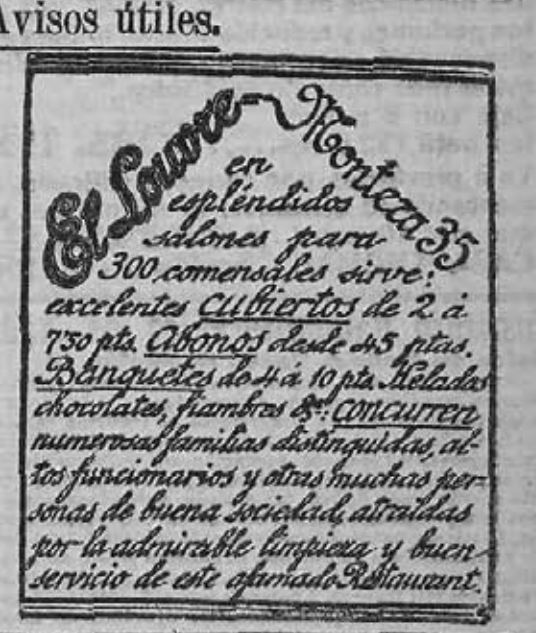 Avisos útiles.
El Louvre - Montera 35
en
espléndidos
salones para
300 comensales sirve:
excelentes cubiertos de 2 á
7'50 pts. Abonos desde 45 ptas.
Banquetes de 4 á 10 pts. Helados
chocolates, fiambres &ª: concurren
numerosas familias distinguidas, al-
tos funcionarios y otras muchas per-
sonas de buena sociedad, atraídas
por la admirable limpieza y buen
servicio de este afamado Restaurant.